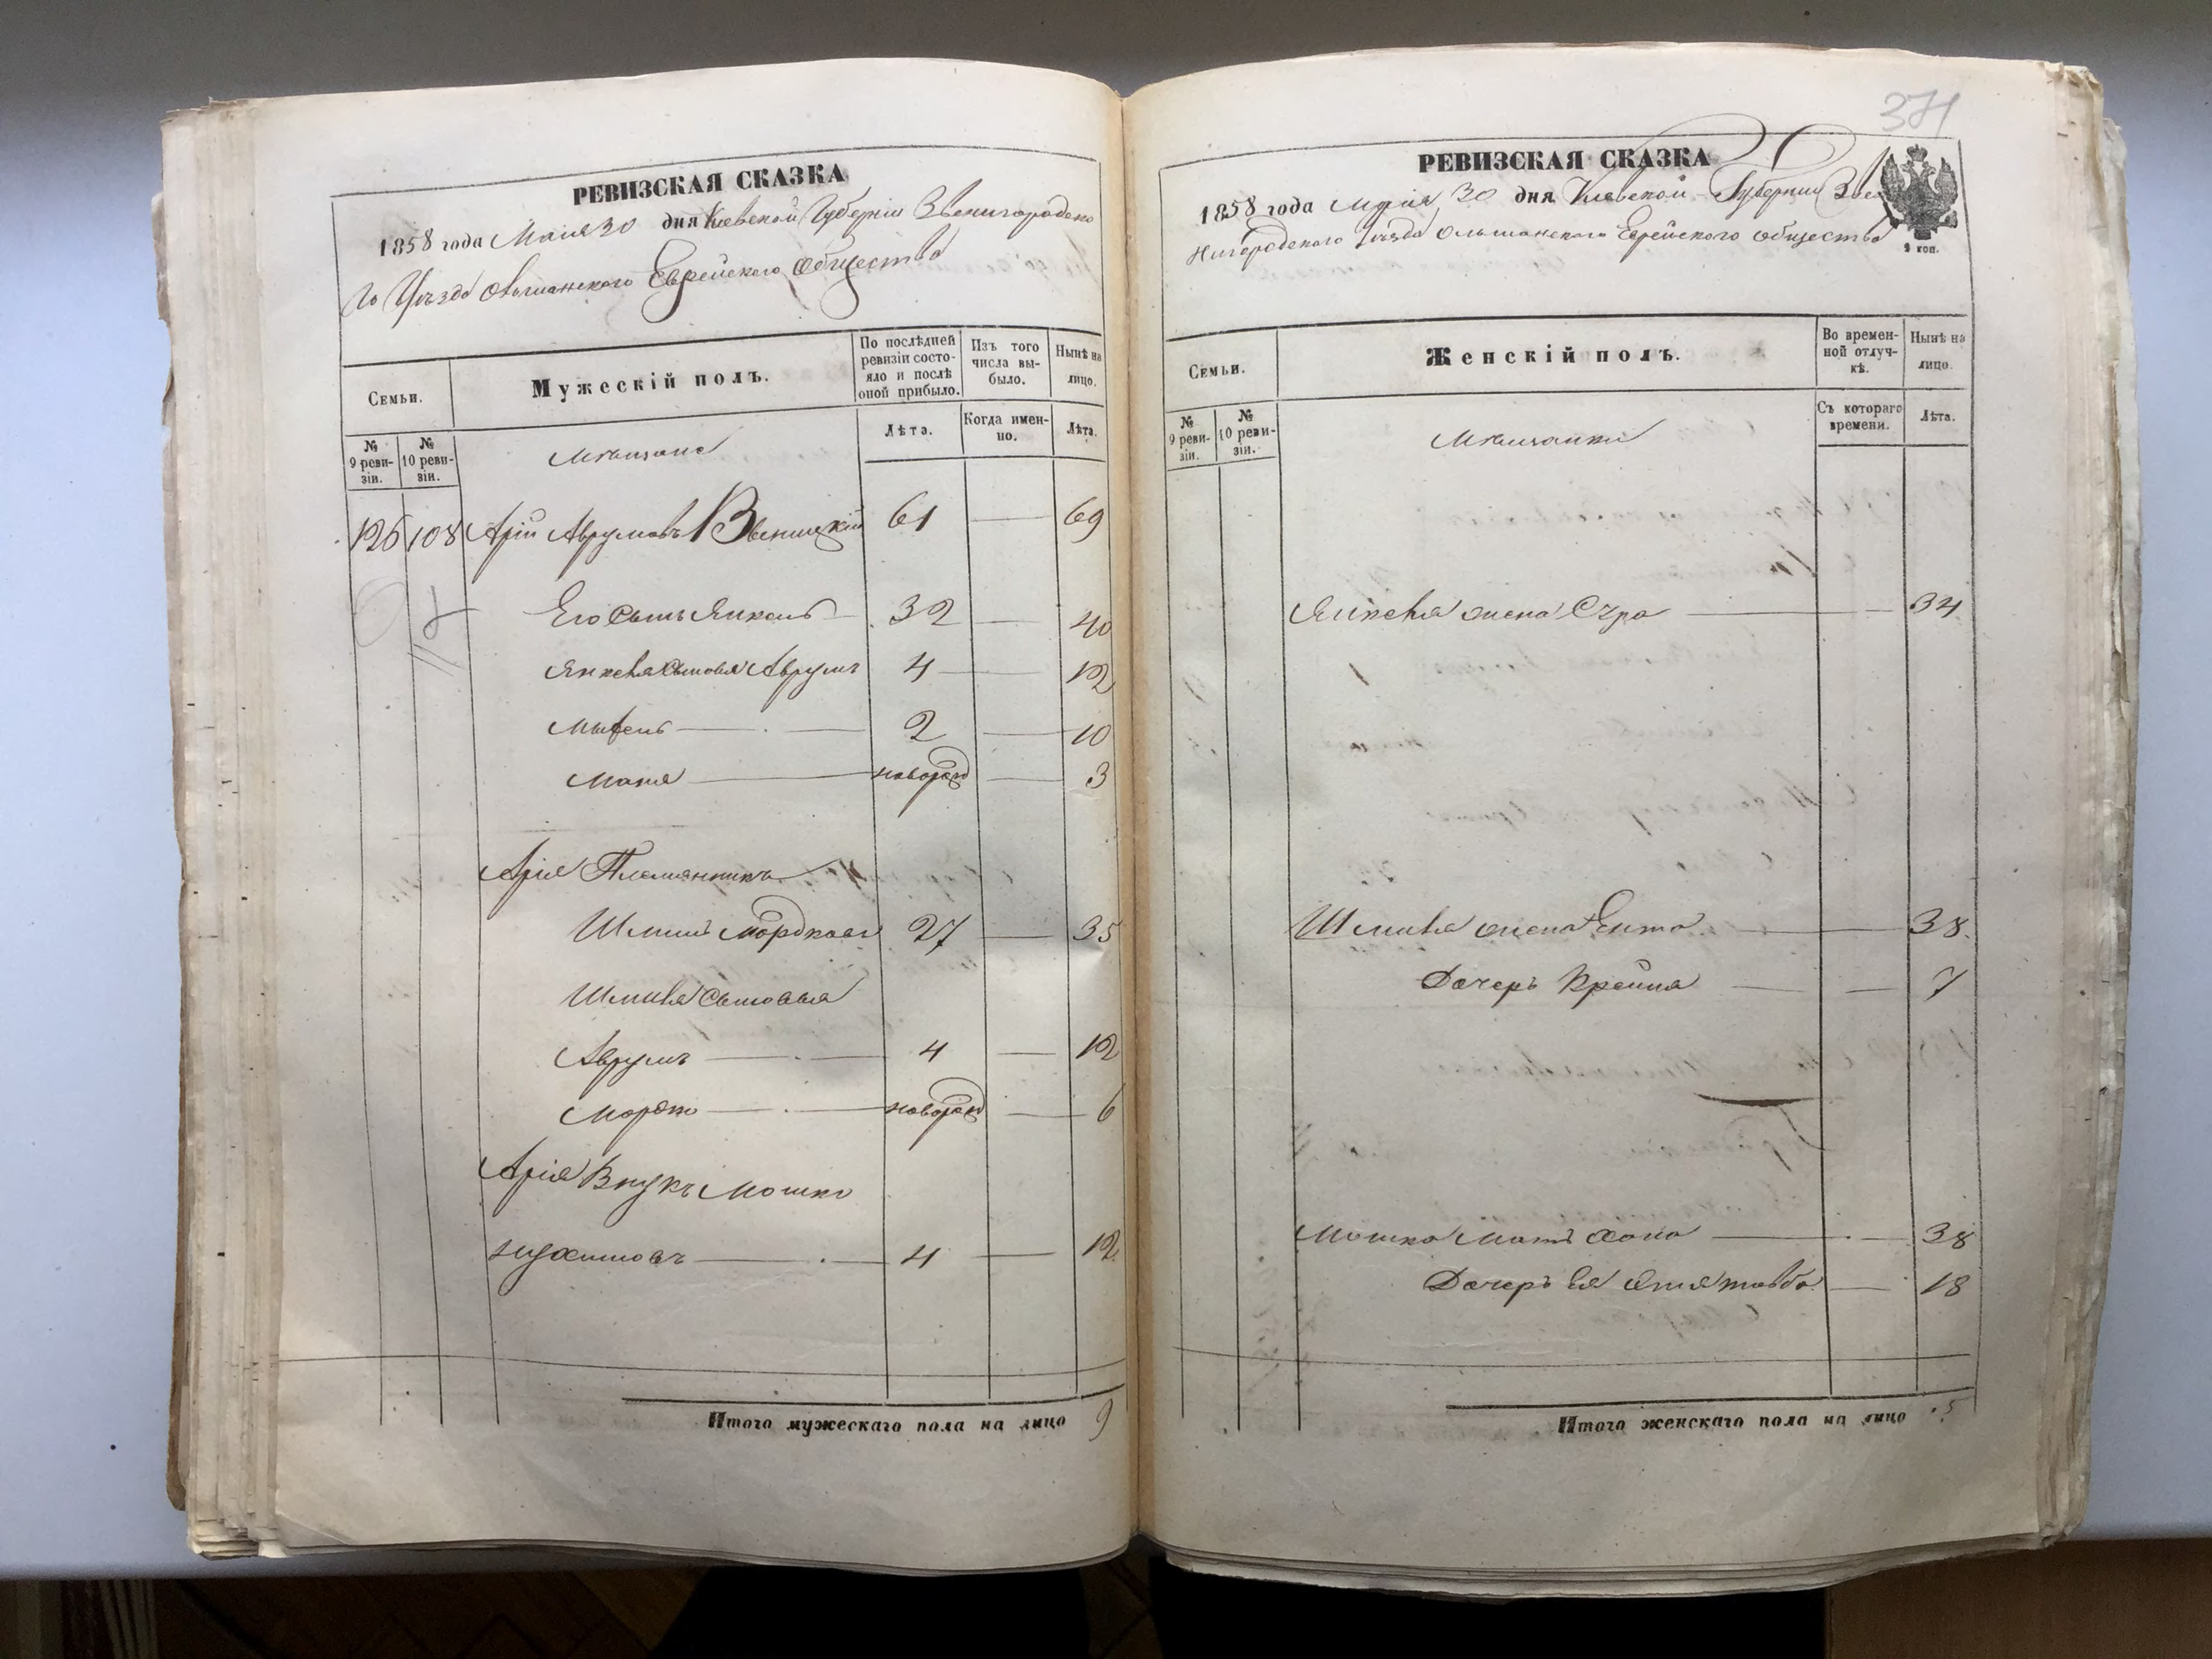 РЕВИЗСКАЯ СКАЗКА
1858 года Маія 30 дня Кіевской Губерніи Звенигородска
го Уѣзда Ольшанского Еврейского общества
Семьи.
Мужескій полъ.
По послѣдней ревизіи состо-
яло и послѣ
оной прибыло.
Изъ того
числа вы-
было.
Нынѣ на
лицо.
№
9 реви-
зіи.
№
10 реви-
зіи.
Мѣщане
Лѣта.
Когда имен-
но.
Лѣта.
126 108 Арій Аврумовъ Звеницкій 61 — 69
Его сынъ Янкель — 32 — 40
Янкеля сыновья Аврумъ 4 — 12
— 2 — 10
— новорожд — 3
Арія Племянникъ
Шмиль Мордков 27 — 35
Шмиля сыновья
Аврумъ — 4 — 12
Мордко — новорожд — 6
Арія Внукъ Мошко
— 4 — 12
Итого мужескаго пола на лицо 9
371
РЕВИЗСКАЯ СКАЗКА
1858 года Маія 30 дня Кіевской Губерніи Зве
нигородского Уѣзда Ольшанского Еврейского общества
2 коп.
Семьи.
Женскій полъ.
Во времен-
ной отлуч-
кѣ.
Нынѣ на
лицо.
№
9 реви-
зіи.
№
10 реви-
зіи.
Мѣщанки
Съ котораго
времени.
Лѣта.
Янкеля жена Сура — 34
Шмиля жена Ента — 38
Дочерь Крейна — 7
Мошка мать Хана — 38
Дочерь Ея — 18
Итого женскаго пола на лицо 5